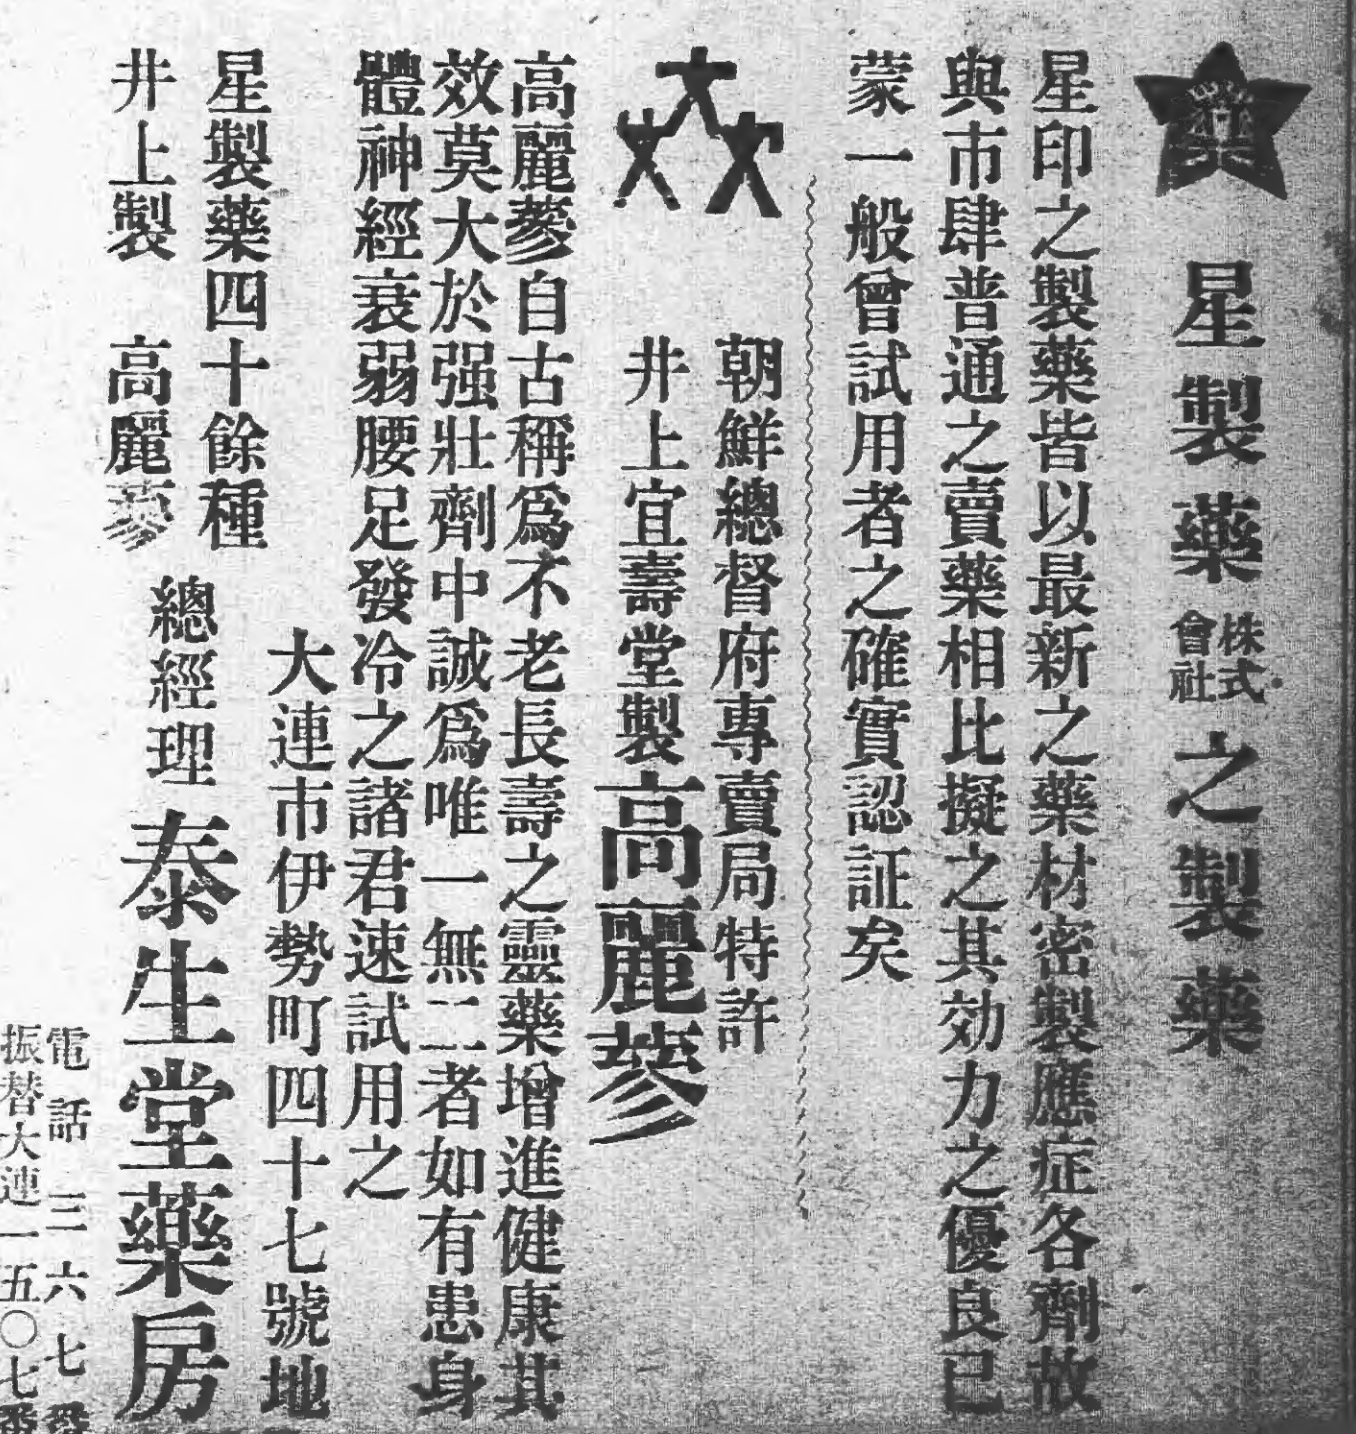 星製藥株式會社之製藥
星印之製藥皆以最新之藥材密製應症各劑故
與市肆普通之賣藥相比擬之其効力之優良已
蒙一般曾試用者之確實認証矣
朝鮮總督府專賣局特許
井上宜壽堂製高麗蔘
高麗蔘自古稱爲不老長壽之靈藥增進健康其
效莫大於强壯劑中誠爲唯一無二者如有患身
體神經衰弱腰足發冷之諸君速試用之
大連市伊勢町四十七號地
星製藥四十餘種
井上製 高麗蔘
總經理 泰生堂藥房
電話三六七番
振替大連一五〇七番